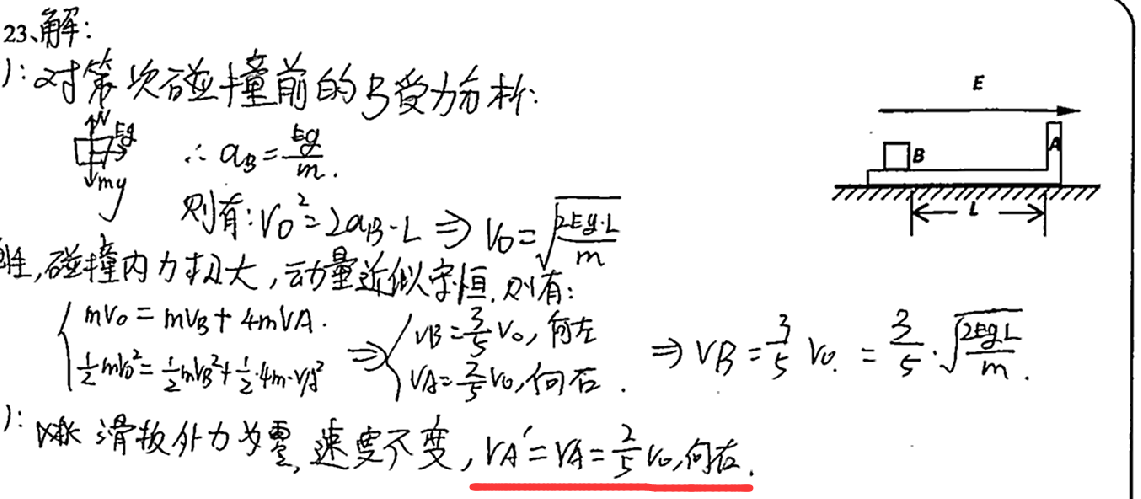 23、解:
): 对第次碰撞前的B受力分析:
N
Eq
mg
∴ a_B = Eq/m.
则有: V₀² = 2a_B·L ⇒ V₀ = √(2Eq·L/m)
碰撞内力极大, 动量近似守恒, 则有:
{ mv₀ = mV_B + 4mV_A. ½mv₀² = ½mV_B² + ½·4m·V_A² ⇒ { V_B = 3/5 V₀, 向左 V_A = 2/5 V₀, 向右. ⇒ V_B = 3/5 V₀. = 3/5·√(2EqL/m).
): 滑板外力为零, 速度不变, V_A' = V_A = 2/5 V₀, 向右.
E
B
A
L